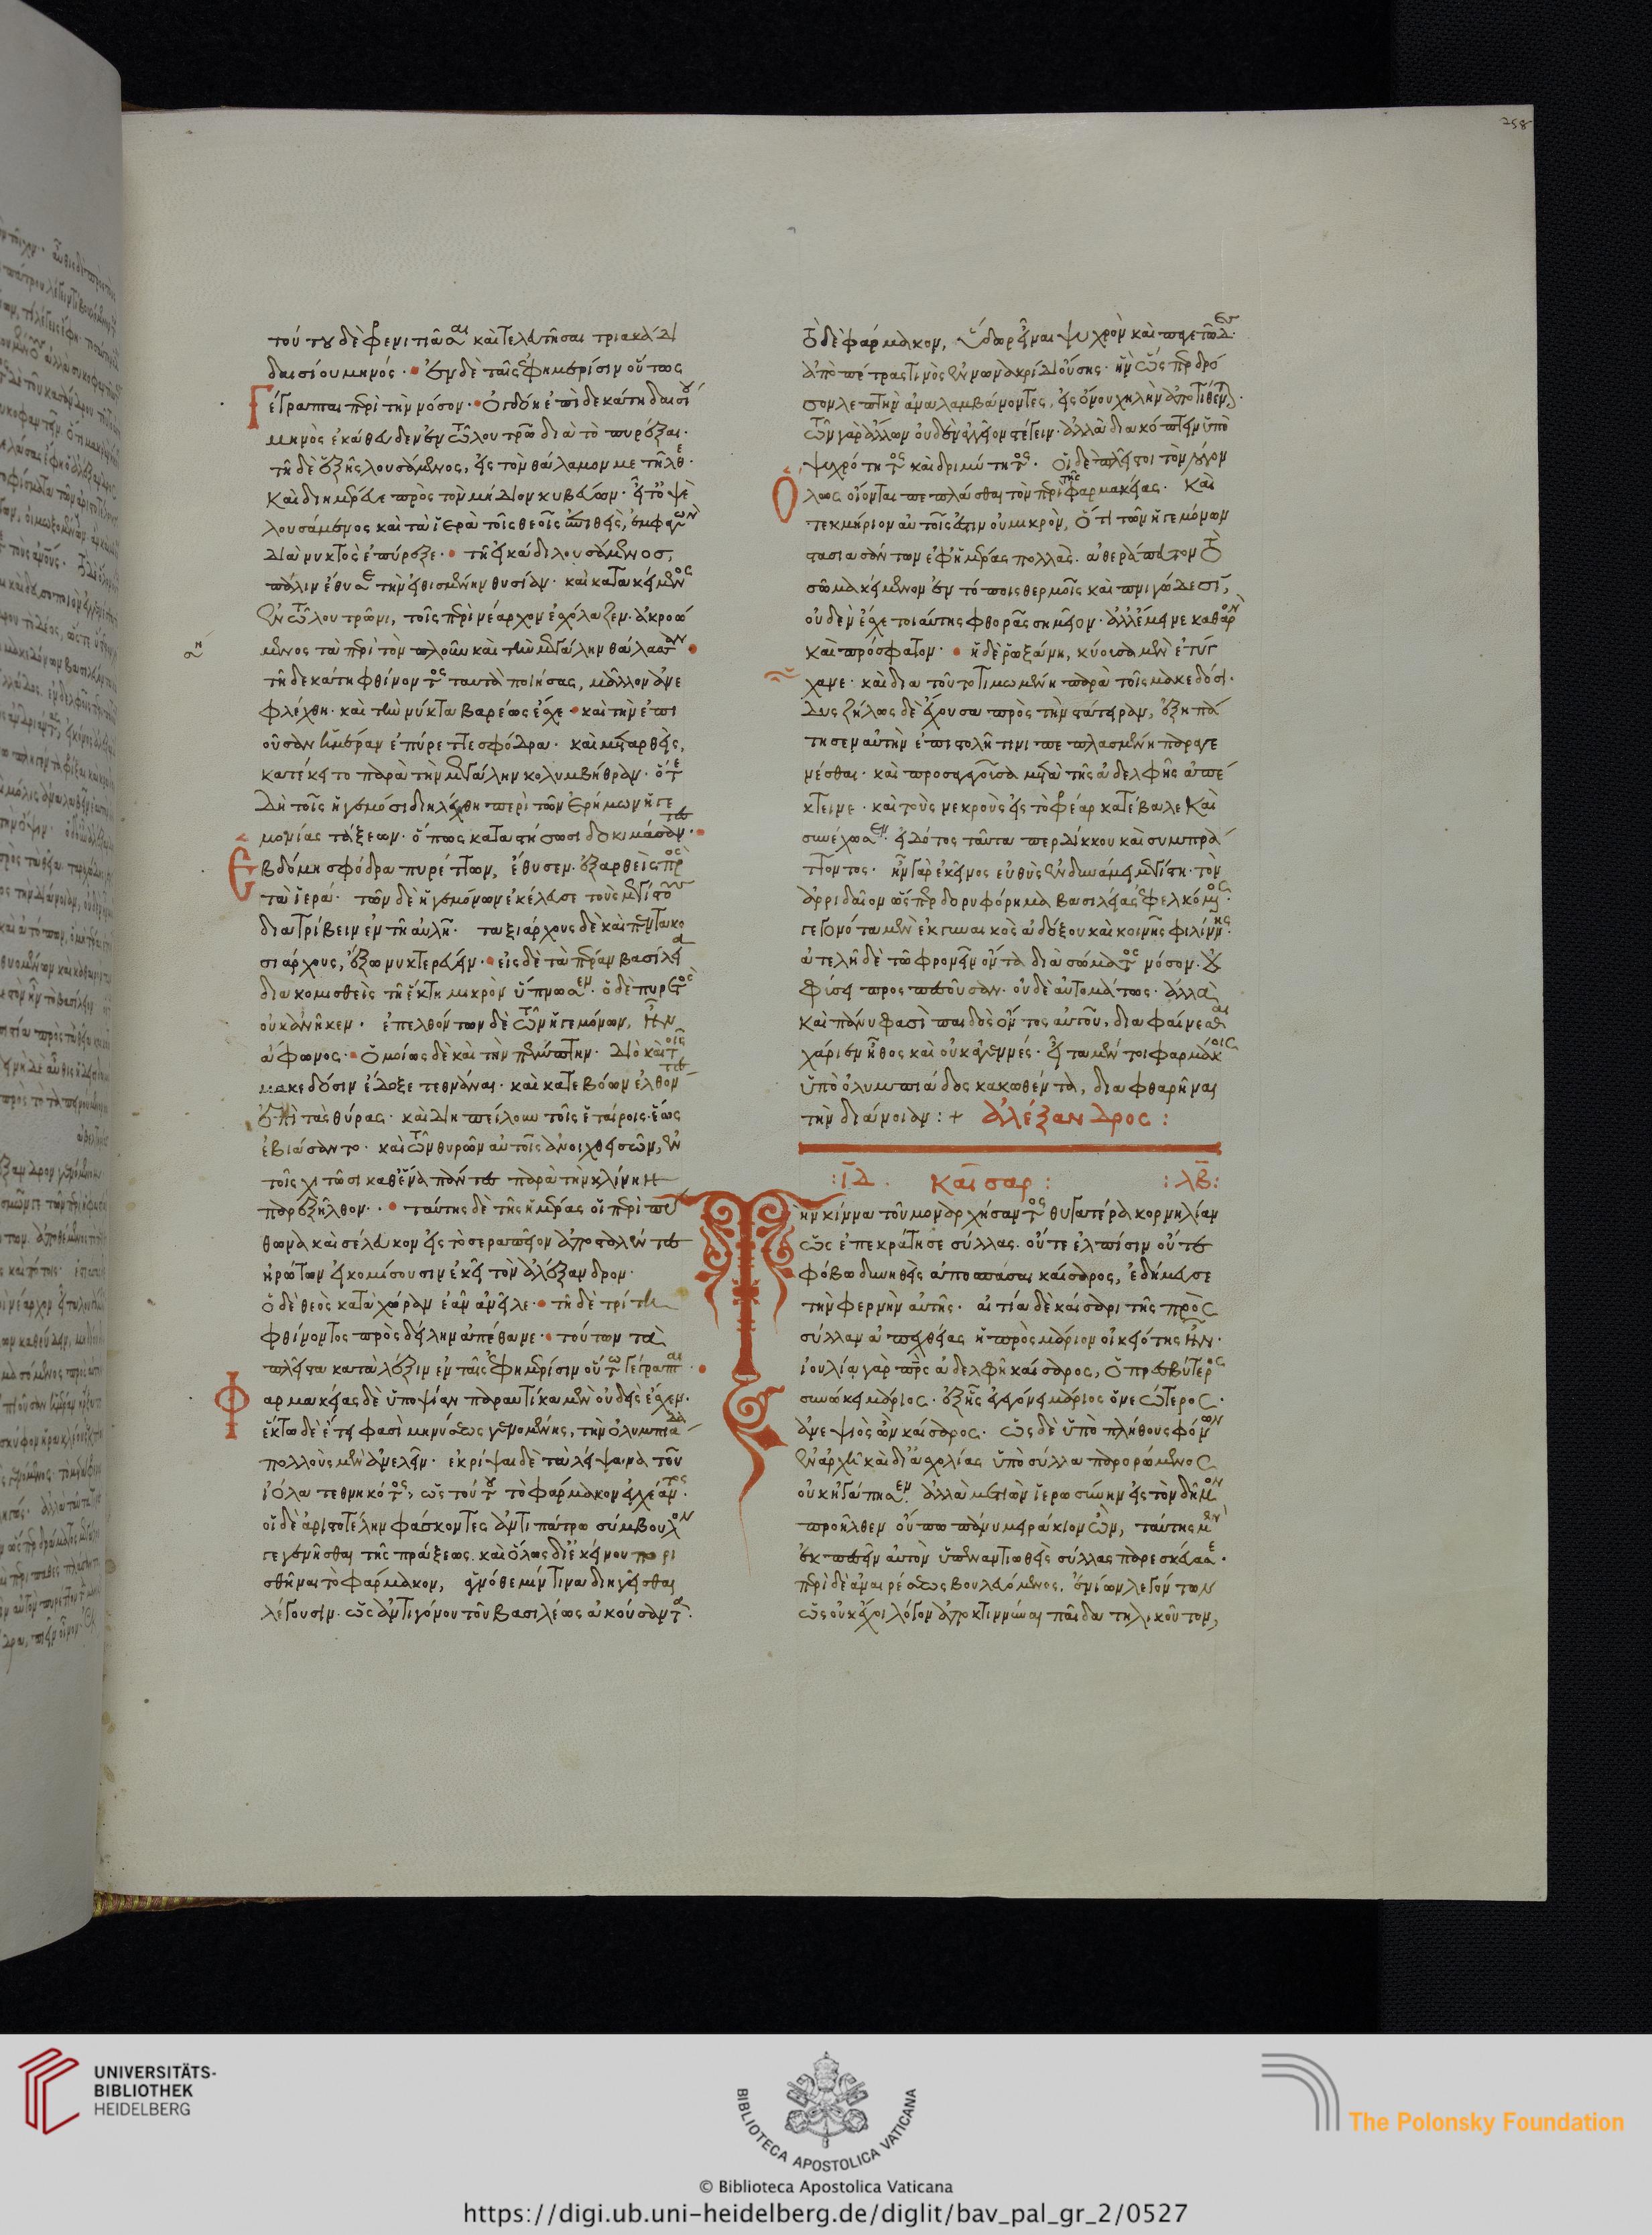 258
τούτου δὲ φρενιτιᾶσαι καὶ τελευτῆσαι τριακάδι
δαισίου μηνός · ἐν δὲ ταῖς ἐφημερίσιν οὕτως
Γέγραπται περὶ τὴν νόσον · ὀγδόη ἐπὶ δεκάτη δαισίου
μηνὸς ἐκάθευδεν ἐν τῶ λουτρῶ διὰ τὸ πυρέξαι ·
τῆ δὲ ἑξῆς λουσάμενος, εἰς τὸν θάλαμον μετῆλθε ·
καὶ διημέρευε πρὸς τὸν μήδιον κυβεύων · εἶτ' ὀψὲ
λουσάμενος καὶ τὰ ἱερὰ τοῖς θεοῖς ἐπιθεὶς, ἐμφαγὼν
διὰ νυκτὸς ἐπύρεξε · τῆ εἰκάδι λουσάμενος,
πάλιν ἔθυσε τὴν εἰθισμένην θυσίαν · καὶ κατακείμενος
ἐν τῶ λουτρῶνι, τοῖς περὶ νέαρχον ἐσχόλαζεν · ἀκροώ
μενος τὰ περὶ τὸν πλοῦν καὶ τὴν μεγάλην θάλασσαν ·
τῆ δεκάτη φθίνοντος ταυτὰ ποιήσας, μᾶλλον ἀνε
φλέχθη · καὶ τὴν νύκτα βαρέως ἔσχε · καὶ τὴν ἐπι
οῦσαν ἡμέραν ἐπύρεττε σφόδρα · καὶ μεταρθεὶς,
κατέκειτο παρὰ τὴν μεγάλην κολυμβήθραν · ὅτε
δὴ τοῖς ἡγεμόσι διηλέχθη περὶ τῶν ἐρήμων ἡγε
μονίας τάξεων · ὅπως καταστήσωσι δοκιμάσαντες ·
Ἑβδόμη σφόδρα πυρέττων, ἔθυσεν · ἐξαρθεὶς πρὸς
τὰ ἱερά · τῶν δὲ ἡγεμόνων ἐκέλευσε τοὺς μεγίστους
διατρίβειν ἐν τῆ αὐλῆ · ταξιάρχους δὲ καὶ πεντακο
σιάρχους, ἔξω νυκτερεύειν · εἰς δὲ τὰ πέραν βασίλεια
διακομισθεὶς τῆ ἕκτη μικρὸν ὕπνωσεν · ὁ δὲ πυρετὸς
οὐκ ἀνῆκεν · ἐπελθόντων δὲ τῶν ἡγεμόνων, ἦν
ἄφωνος · ὁμοίως δὲ καὶ τὴν πέμπτην · διὸ καὶ τοῖς
μακεδόσιν ἔδοξε τεθνάναι · καὶ κατεβόων ἐλθόντες
ἐπὶ τὰς θύρας · καὶ διηπείλουν τοῖς ἑταίροις · ἕως
ἐβιάσαντο · καὶ τῶν θυρῶν αὐτοῖς ἀνοιχθεισῶν, ἐν
τοῖς χιτῶσι καθ' ἕνα πάντες παρὰ τὴν κλίνην
παρεξῆλθον · ταύτης δὲ τῆς ἡμέρας οἱ περὶ πυ
θωνα καὶ σέλευκον εἰς τὸ σεραπεῖον ἀποσταλέντες
ἠρώτων εἰ κομίσουσιν ἐκεῖ τὸν ἀλέξανδρον ·
ὁ δὲ θεὸς κατὰ χώραν ἐᾶν ἀνεῖλε · τῆ δὲ τρίτη
φθίνοντος πρὸς δείλην ἀπέθανε · τούτων τὰ
πλεῖστα κατὰ λέξιν ἐν ταῖς ἐφημερίσιν οὕτω γέγραπται ·
Φαρμακείας δὲ ὑποψίαν παραυτίκα μὲν οὐδεὶς ἔσχεν ·
ἕκτω δὲ ἔτει φασὶ μηνύσεως γενομένης, τὴν ὀλυμπιάδα
πολλοὺς μὲν ἀνελεῖν · ἐκρίψαι δὲ τὰ λείψανα τοῦ
ἰόλα τεθνηκότος, ὡς τούτου τὸ φάρμακον ἐγχέαντος ·
οἱ δὲ ἀριστοτέλην φάσκοντες ἀντιπάτρω σύμβουλον
γεγενῆσθαι τῆς πράξεως · καὶ ὅλως δι' ἐκείνου πορι
σθῆναι τὸ φάρμακον, ἁγνόθεμίν τινα διηγεῖσθαι
λέγουσιν · ὡς ἀντιγόνου τοῦ βασιλέως ἀκούσαντα ·
τὸ δὲ φάρμακον, ὕδωρ εἶναι ψυχρὸν καὶ παγετῶδες ·
ἀπὸ πέτρας τινὸς ἐν νωνάκριδι οὔσης · ἣν ὥσπερ δρό
σον λεπτὴν ἀναλαμβάνοντες, εἰς ὄνου χηλὴν ἀποτίθενται ·
τῶν γὰρ ἄλλων οὐδὲν ἀγγεῖον στέγειν · ἀλλὰ διακόπτειν ὑπὸ
ψυχρότητος καὶ δριμύτητος · οἱ δὲ πλεῖστοι τὸν λόγον
Ὅλως οἴονται πεπλάσθαι τὸν περὶ τῆς φαρμακείας · καὶ
τεκμήριον αὐτοῖς ἐστιν οὐ μικρὸν, ὅτι τῶν ἡγεμόνων
στασιασάντων ἐφ' ἡμέρας πολλὰς · ἀθεράπευτον τὸ
σῶμα κείμενον ἐν τόποις θερμοῖς καὶ πνιγώδεσι,
οὐδὲν ἔσχε τοιαύτης φθορᾶς σημεῖον · ἀλλ' ἔμεινε καθαρὸν
καὶ πρόσφατον · ἡ δὲ ῥωξάνη, κύουσα μὲν ἐτύγ
χανε · καὶ διὰ τοῦτο τιμωμένη παρὰ τοῖς μακεδόσι ·
δυσζήλως δὲ ἔχουσα πρὸς τὴν στάτειραν, ἐξηπά
τησεν αὐτὴν ἐπιστολῆ τινι πεπλασμένη παραγε
νέσθαι · καὶ προσαγαγοῦσα μετὰ τῆς ἀδελφῆς ἀπέ
κτεινε · καὶ τοὺς νεκροὺς εἰς τὸ φρέαρ κατέβαλε καὶ
συνέχωσεν · εἰδότος ταῦτα περδίκκου καὶ συμπρά
ττοντος · ἦν γὰρ ἐκεῖνος εὐθὺς ἐν δυνάμει μεγίστη · τὸν
ἀρριδαῖον ὥσπερ δορυφόρημα βασιλείας ἐφελκόμενος ·
γεγονότα μὲν ἐκ γυναικὸς ἀδόξου καὶ κοινῆς φιλίννης ·
ἀτελῆ δὲ τὸ φρονεῖν ὄντα διὰ σώματος νόσον · οὐ
φύσει προσπεσοῦσαν · οὐδὲ αὐτομάτως · ἀλλὰ
καὶ πάνυ φασὶ παιδὸς ὄντος αὐτοῦ, διαφαίνεσθαι
χάριεν ἦθος καὶ οὐκ ἀγεννές · εἶτα μέντοι φαρμάκοις
ὑπὸ ὀλυμπιάδος κακωθέντα, διαφθαρῆναι
τὴν διάνοιαν : + ἀλέξανδρος :
: ΙΔ · Καῖσαρ : : ΛΒ :
Τὴν κίννα τοῦ μοναρχήσαντος θυγατέρα κορνηλίαν
ὡς ἐπεκράτησε σύλλας · οὔτε ἐλπίσιν οὔτε
φόβω δυνηθεὶς ἀποσπάσαι καίσαρος, ἐδήμευσε
τὴν φερνὴν αὐτῆς · αἰτία δὲ καίσαρι τῆς πρὸς
σύλλαν ἀπεχθείας ἡ πρὸς μάριον οἰκειότης ἦν ·
ἰουλία γὰρ πατρὸς ἀδελφῆ καίσαρος, ὁ πρεσβύτερος
συνώκει μάριος · ἐξ ἧς ἐγεγόνει μάριος ὁ νεώτερος ·
ἀνεψιὸς ὢν καίσαρος · ὡς δὲ ὑπὸ πλήθους φόνων
ἐν ἀρχῆ καὶ δι' ἀσχολίας ὑπὸ σύλλα παρορώμενος
οὐκ ἠγάπησεν · ἀλλὰ μετιὼν ἱερωσύνην εἰς τὸν δῆμον
προῆλθεν οὔπω πάνυ μειράκιον ὢν, ταύτης μὲν
ἐκπεσεῖν αὐτὸν ὑπεναντιωθεὶς σύλλας παρεσκεύασε ·
περὶ δὲ ἀναιρέσεως βουλευόμενος, ἐνίων λεγόντων
ὡς οὐκ ἔχοι λόγον ἀποκτιννύναι παῖδα τηλικοῦτον,
UNIVERSITÄTS-
BIBLIOTHEK
HEIDELBERG
BIBLIOTECA APOSTOLICA VATICANA
The Polonsky Foundation
© Biblioteca Apostolica Vaticana
https://digi.ub.uni-heidelberg.de/diglit/bav_pal_gr_2/0527